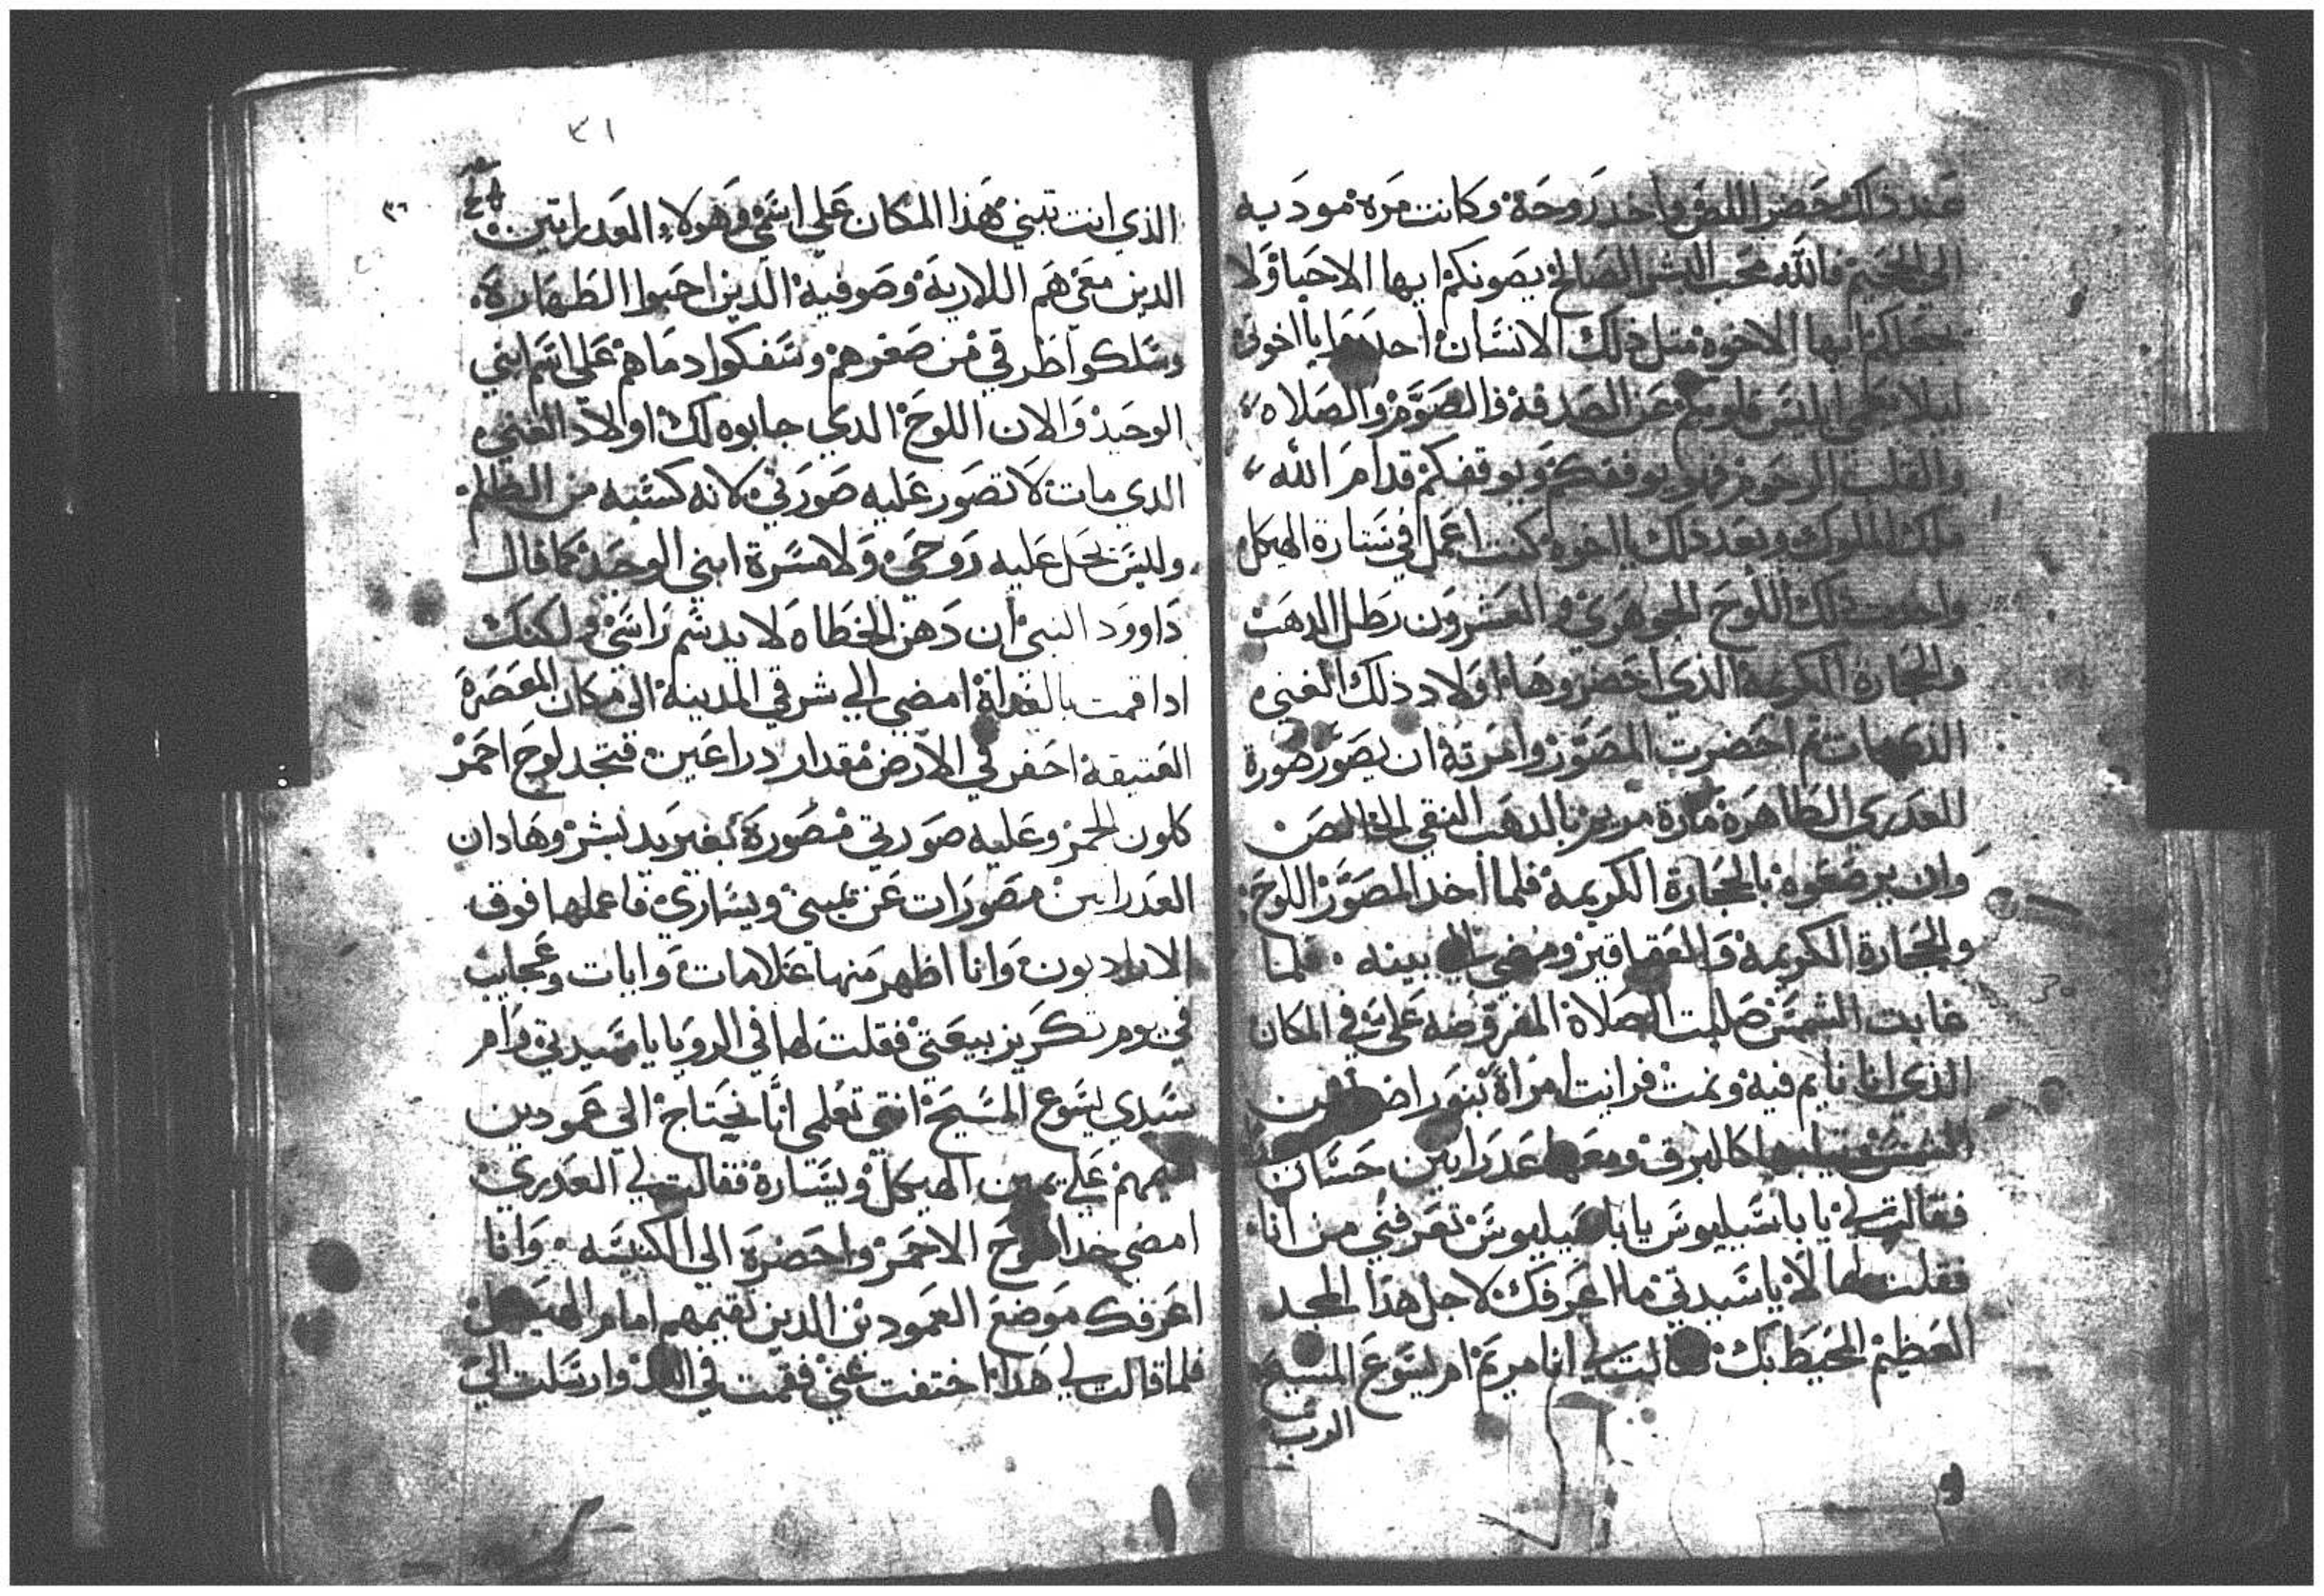 عند ذلك حضر اللص واخد روحه وكانت مره موديه
الي الجحيم فالله محب البشر الصالح يصونكم ايها الاحبا ولا
يجعلكم ايها الاخوه متل ذلك الانسان احدروا يا اخوتي
ليلا يطغي ابليس قلوبكم عن الصدقة والصوم والصلاه
والقلب الرحوم فهو يوفقكم ويوقفكم قدام الله
ملك الملوك وبعد ذلك يا اخوه كنت اعمل في ستارة الهيكل
واخدت ذلك اللوح الجوهري والعشرون رطل الدهب
والحجارة الكريمة الذي احضروها اولاد ذلك الغني
الذي مات تم احضرت المصور وامرته ان يصور صورة
للعدري الطاهرة مارة مريم بالدهب النقي الخالص
وان يرصعوه بالحجارة الكريمة فلما اخد المصور اللوح
والحجارة الكريمة والعقاقير ومضي الي بيته فلما
غابت الشمس صليت الصلاة المفروضه علي في المكان
الذي انا نايم فيه ونمت فرايت امراة بنور اضوا من
الشمس تيابها كالبرق ومعها عدراتين حسان
فقالت لي يا باسيليوس يا باسيليوس تعرفني من انا
فقلت لها لا يا سيدتي ما اعرفك لاجل هذا المجد
العظيم المحيط بك فقالت لي انا مريم ام يسوع المسيح
الرب
٣١
٣٦
الذي انت تبني هذا المكان علي اسمي وهولاء العدراتين
الدين معي هم اللارية وصوفية الدين احبوا الطهارة
وسلكوا طرقي من صغرهم وسفكوا دماهم علي اسم ابني
الوحيد والان اللوح الدي جابوه لك اولاد الغني
الدي مات لا تصور عليه صورتي لانه كسبه من الظلم
وليس يحل عليه روحي ولا مسرة ابني الوحيد كما قال
داوود النبي ان دهن الخطاه لا يدشم راسي ولكنك
ادا قمت بالغداة امضي الي شرقي المدينة الي مكان المعصرة
العتيقة احفر في الارض مقدار دراعين فتجد لوح احمر
كلون الجمر وعليه صورتي مصورة بغير يد بشر وهادان
العدراتين مصورات عن يميني ويساري فاعملها فوق
الاراديون وانا اظهر منها علامات وايات وعجايب
في يوم تكريز بيعتي فقلت لها في الرويا يا سيدتي وام
سيدي يسوع المسيح انتي تعلمي انا نحتاج الي عمودين
نقيمهم علي يمين الهيكل ويساره فقالت لي العدري
امضي خد اللوح الاحمر واحضره الي الكنيسه وانا
اعرفك موضع العمودين الدين تقيمهم امام الهيكل
فلما قالت لي هدا اختفت عني فقمت في وارسلت الي